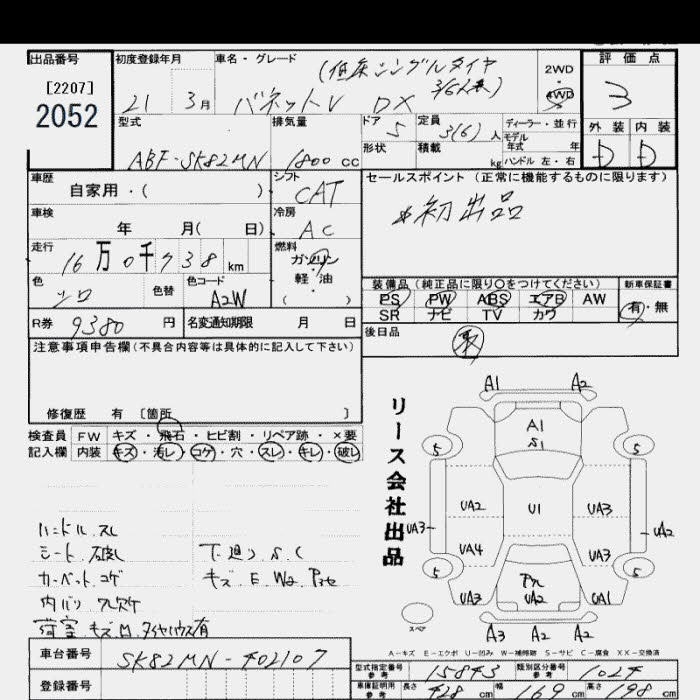 出品番号
[2207]
2052
初度登録年月
21 3月
車名・グレード
(低床シングルタイヤ
3/6人乗)
バネットV DX
2WD
4WD
評価点
3
外装 内装
D D
型式
ABF-SK82MN
排気量
1800 cc
ドア
5
定員
3(6)人
形状
積載
kg
ディーラー・並行
モデル
年式 年
ハンドル 左・右
車歴
自家用・( )
シフト
CAT
セールスポイント (正常に機能するものに限ります)
*初出品
車検
年 月( 日)
冷房
AC
走行
16万0千738km
燃料
ガソリン
軽・油
( )
色
シロ
色替
色コード
A2W
装備品 (純正品に限り○をつけてください)
PS PW ABS エアB AW
SR ナビ TV カワ
新車保証書
有・無
R券
9380円
名変通知期限 月 日
後日品
注意事項申告欄 (不具合内容等は具体的に記入して下さい)
修復歴 有 〔箇所 〕
検査員
記入欄
FW キズ・飛石・ヒビ割・リペア跡・×要
内装 キズ・汚レ・コゲ・穴・スレ・キレ・破レ
ハンドル.スレ
シート.破レ
カーペット.コゲ
内バリ.ワレ欠ケ
荷室.キズ.凹.タイヤハウス有
下廻り.S.C
キズ.E.W2
リース会社出品
A1 A2
A1
S1
5 5
UA2 U1 UA3
UA3 UA2
UA4 UA3
5 5
UA3 UA2 UA1
スペア
A3 A2 A2
A-キズ E-エクボ U-凹み W-補修跡 S-サビ C-腐食 XX-交換済
車台番号
SK82MN-402107
登録番号
型式指定番号
参考
15843
類別区分番号
参考
1024
車庫証明用
参考
長さ 428 cm
幅 169 cm
高さ 198 cm